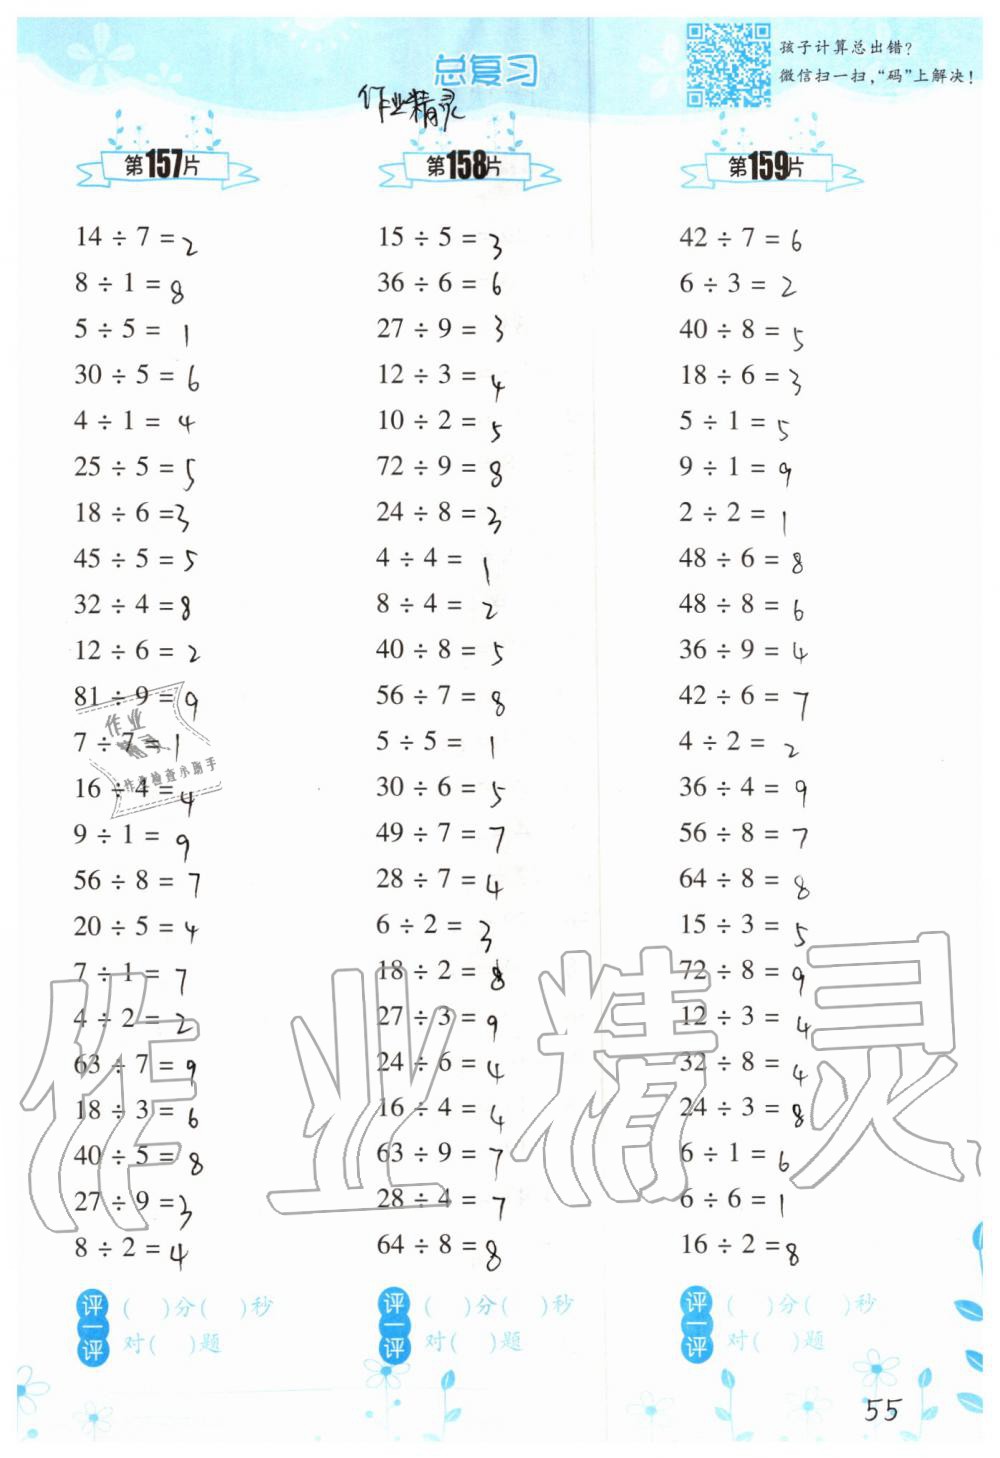 孩子计算总出错?
微信扫一扫,“码”上解决!
总复习
作业精灵
第157片
14 ÷ 7 = 2
8 ÷ 1 = 8
5 ÷ 5 = 1
30 ÷ 5 = 6
4 ÷ 1 = 4
25 ÷ 5 = 5
18 ÷ 6 = 3
45 ÷ 5 = 5
32 ÷ 4 = 8
12 ÷ 6 = 2
81 ÷ 9 = 9
7 ÷ 7 = 1
16 ÷ 4 = 4
9 ÷ 1 = 9
56 ÷ 8 = 7
20 ÷ 5 = 4
7 ÷ 1 = 7
4 ÷ 2 = 2
63 ÷ 7 = 9
18 ÷ 3 = 6
40 ÷ 5 = 8
27 ÷ 9 = 3
8 ÷ 2 = 4
评一评
( )分( )秒
对( )题
第158片
15 ÷ 5 = 3
36 ÷ 6 = 6
27 ÷ 9 = 3
12 ÷ 3 = 4
10 ÷ 2 = 5
72 ÷ 9 = 8
24 ÷ 8 = 3
4 ÷ 4 = 1
8 ÷ 4 = 2
40 ÷ 8 = 5
56 ÷ 7 = 8
5 ÷ 5 = 1
30 ÷ 6 = 5
49 ÷ 7 = 7
28 ÷ 7 = 4
6 ÷ 2 = 3
18 ÷ 2 = 8
27 ÷ 3 = 9
24 ÷ 6 = 4
16 ÷ 4 = 4
63 ÷ 9 = 7
28 ÷ 4 = 7
64 ÷ 8 = 8
评一评
( )分( )秒
对( )题
第159片
42 ÷ 7 = 6
6 ÷ 3 = 2
40 ÷ 8 = 5
18 ÷ 6 = 3
5 ÷ 1 = 5
9 ÷ 1 = 9
2 ÷ 2 = 1
48 ÷ 6 = 8
48 ÷ 8 = 6
36 ÷ 9 = 4
42 ÷ 6 = 7
4 ÷ 2 = 2
36 ÷ 4 = 9
56 ÷ 8 = 7
64 ÷ 8 = 8
15 ÷ 3 = 5
72 ÷ 8 = 9
12 ÷ 3 = 4
32 ÷ 8 = 4
24 ÷ 3 = 8
6 ÷ 1 = 6
6 ÷ 6 = 1
16 ÷ 2 = 8
评一评
( )分( )秒
对( )题
作业
精灵
作业检查小助手
作业精灵
55